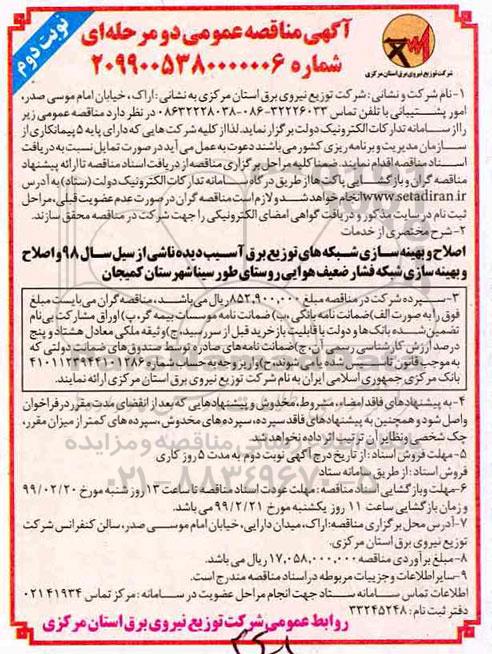 نوبت دوم
آگهی مناقصه عمومی دو مرحله‌ای
شماره ۲۰۹۹۰۰۵۳۸۰۰۰۰۰۰۶
شرکت توزیع نیروی برق استان مرکزی
۱-نام شرکت و نشانی : شرکت توزیع نیروی برق استان مرکزی به نشانی : اراک، خیابان امام موسی صدر،
امور پشتیبانی با تلفن تماس ۳۲۲۲۶۰۳۳-۰۸۶ ۰۸۶۳۲۲۲۸۰۳۸ در نظر دارد مناقصه عمومی زیر
را از سامانه تدارکات الکترونیک دولت برگزار نماید. لذا از کلیه شرکت‌هایی که دارای پایه ۵ پیمانکاری از
سازمان مدیریت و برنامه ریزی کشور می باشند دعوت به عمل می آید در صورت تمایل نسبت به دریافت
اسناد مناقصه اقدام نمایند. ضمنا کلیه مراحل برگزاری مناقصه از دریافت اسناد مناقصه تا ارائه پیشنهاد
مناقصه گران و بازگشایی پاکت‌ها از طریق درگاه سامانه تدارکات الکترونیک دولت (ستاد) به آدرس
www.setadiran.ir انجام خواهد شد و لازم است مناقصه گران در صورت عدم عضویت قبلی، مراحل
ثبت نام در سایت مذکور و دریافت گواهی امضای الکترونیکی را جهت شرکت در مناقصه محقق سازند.
۲-شرح مختصری از خدمات
اصلاح و بهینه سازی شبکه های توزیع برق آسیب دیده ناشی از سیل سال ۹۸ و اصلاح
و بهینه سازی شبکه فشار ضعیف هوایی روستای طور سینا شهرستان کمیجان
۳- سپرده شرکت در مناقصه مبلغ ۸۵۲,۹۰۰,۰۰۰ ریال می باشد، مناقصه گران می بایست مبلغ
فوق را به صورت الف)ضمانت نامه بانکی، ب) ضمانت نامه موسسات بیمه گر، پ) اوراق مشارکت بی نام
تضمین شده بانک ها و دولت با قابلیت بازخرید قبل از سررسید، ج) وثیقه ملکی معادل هشتاد و پنج
درصد ارزش کارشناسی رسمی آن، چ)ضمانت نامه های صادره توسط صندوق های ضمانت دولتی که
به موجب قانون تاسیس شده یا می شوند، ح) واریز وجه به حساب شماره ۴۱۰۱۱۲۳۹۴۲۱۰۱۲۸۶
بانک مرکزی جمهوری اسلامی ایران به نام شرکت توزیع نیروی برق استان مرکزی ارائه نمایند.
۴-به پیشنهادهای فاقد امضاء، مشروط، مخدوش و پیشنهادهایی که بعد از انقضای مدت مقرر در فراخوان
واصل شود و همچنین به پیشنهادهای فاقد سپرده، سپرده های مخدوش، سپرده های کمتر از میزان مقرر،
چک شخصی و نظایر آن ترتیب اثر داده نخواهد شد.
۵-مهلت فروش اسناد : از تاریخ درج آگهی نوبت دوم به مدت ۵ روز کاری
فروش اسناد : از طریق سامانه ستاد
۶-مهلت و بازگشایی اسناد مناقصه : مهلت عودت اسناد مناقصه تا ساعت ۱۳ روز شنبه مورخ ۹۹/۰۲/۲۰
و زمان بازگشایی ساعت ۱۱ روز یکشنبه مورخ ۹۹/۲/۲۱ می باشد.
۷-آدرس محل برگزاری مناقصه:اراک، میدان دارایی، خیابان امام موسی صدر، سالن کنفرانس شرکت
توزیع نیروی برق استان مرکزی.
۸-مبلغ برآوردی مناقصه ۱۷,۰۵۸,۰۰۰,۰۰۰ ریال می باشد.
۹-سایر اطلاعات و جزییات مربوطه در اسناد مناقصه مندرج است.
اطلاعات تماس سامانه ستاد جهت انجام مراحل عضویت در سامانه : مرکز تماس ۰۲۱۴۱۹۳۴
دفتر ثبت نام : ۳۳۲۴۵۲۴۸
روابط عمومی شرکت توزیع نیروی برق استان مرکزی
۰۲۱-۸۸۳۴۹۶۷۰-۵